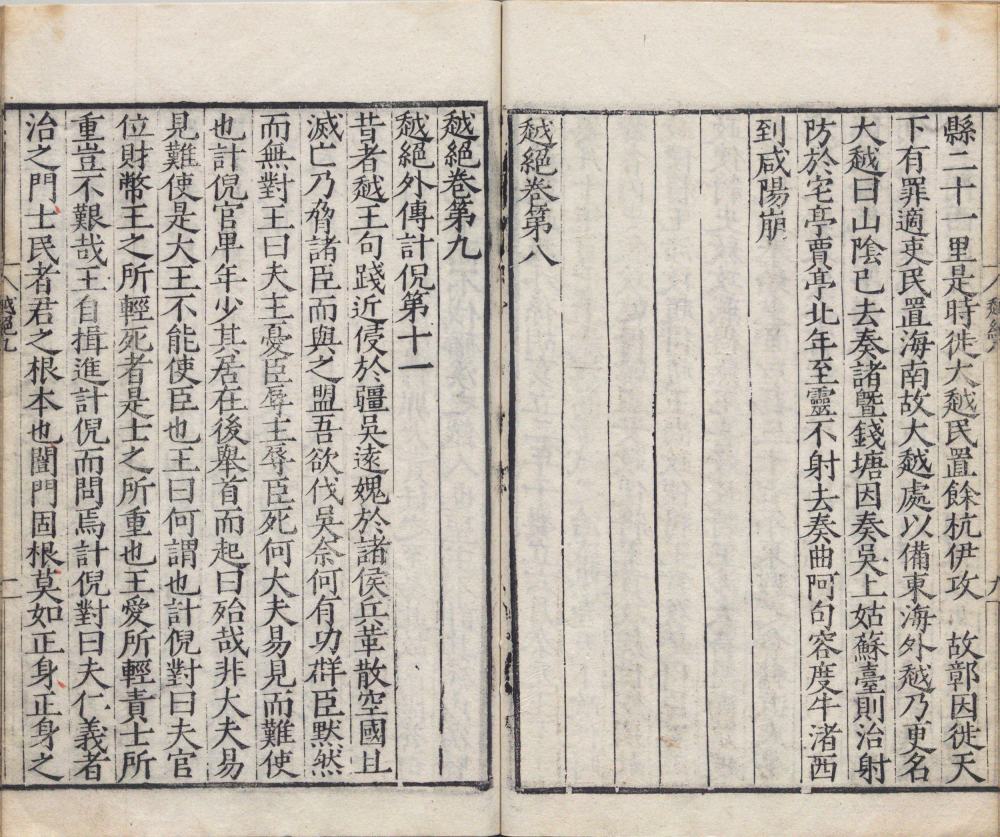 縣二十一里是時徙大越民置餘杭伊攻 故鄣因徙天
下有罪適吏民置海南故大越處以備東海外越乃更名
大越曰山陰已去奏諸暨錢塘因奏吳上姑蘇臺則治射
防於宅亭賈亭北年至靈不射去奏曲阿句容度牛渚西
到咸陽崩
越絕卷第八
越絕卷第九
越絕外傳計倪第十一
昔者越王句踐近侵於彊吳遠媿於諸侯兵革散空國且
滅亡乃脅諸臣而與之盟吾欲伐吳奈何有功群臣默然
而無對王曰夫主憂臣辱主辱臣死何大夫易見而難使
也計倪官卑年少其居在後舉首而起曰殆哉非大夫易
見難使是大王不能使臣也王曰何謂也計倪對曰夫官
位財幣王之所輕死者是士之所重也王愛所輕責士所
重豈不艱哉王自揖進計倪而問焉計倪對曰夫仁義者
治之門士民者君之根本也闓門固根莫如正身正身之
越絕九